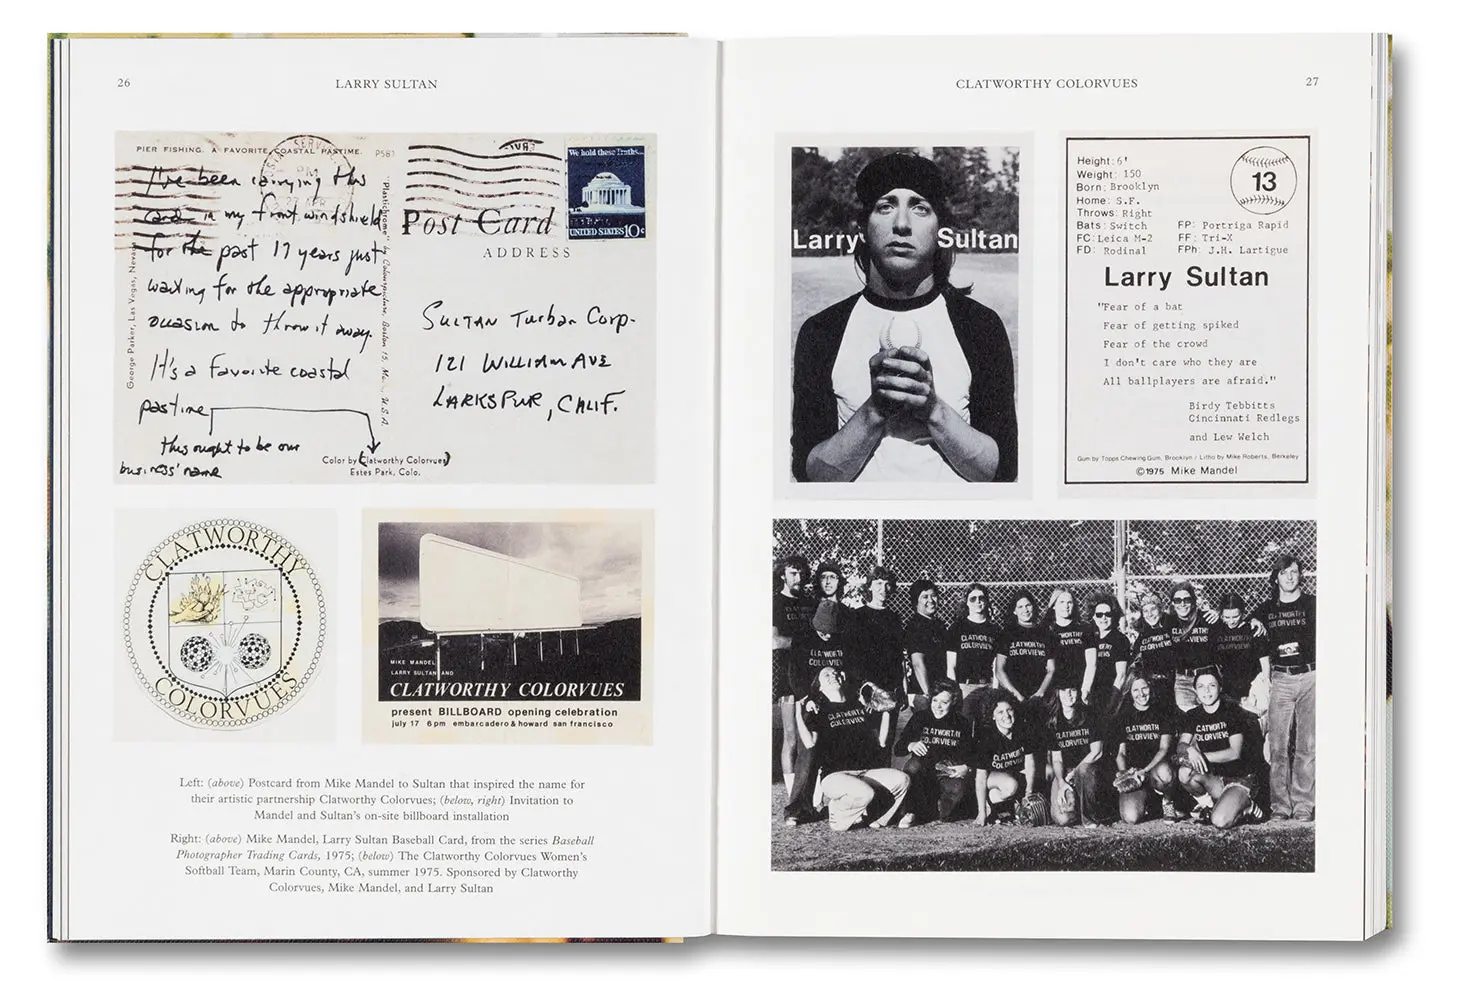 26
LARRY SULTAN
PIER FISHING. A FAVORITE COASTAL PASTIME.
P581
I've been carrying this
card in my front windshield
for the past 17 years just
waiting for the appropriate
occasion to throw it away.
It's a favorite coastal
pastime,
this ought to be our
business' name
George Parker, Las Vegas, Nevada
"Plastichrome" by Colourpicture, Boston 15, Mass., U.S.A.
Color by (Clatworthy Colorvues)
Estes Park, Colo.
We hold these Truths...
UNITED STATES 10c
Post Card
ADDRESS
SULTAN Turban Corp.
121 WILLIAM AVE
LARKSPUR, CALIF.
CLATWORTHY
COLORVUES
MIKE MANDEL
LARRY SULTAN AND
CLATWORTHY COLORVUES
present BILLBOARD opening celebration
july 17 6pm embarcadero & howard san francisco
Left: (above) Postcard from Mike Mandel to Sultan that inspired the name for
their artistic partnership Clatworthy Colorvues; (below, right) Invitation to
Mandel and Sultan's on-site billboard installation
Right: (above) Mike Mandel, Larry Sultan Baseball Card, from the series Baseball
Photographer Trading Cards, 1975; (below) The Clatworthy Colorvues Women's
Softball Team, Marin County, CA, summer 1975. Sponsored by Clatworthy
Colorvues, Mike Mandel, and Larry Sultan
CLATWORTHY COLORVUES
27
Larry Sultan
Height: 6'
Weight: 150
Born: Brooklyn
Home: S.F.
Throws: Right
Bats: Switch
FC: Leica M-2
FD: Rodinal
13
FP: Portriga Rapid
FF: Tri-X
FPh: J.H. Lartigue
Larry Sultan
"Fear of a bat
Fear of getting spiked
Fear of the crowd
I don't care who they are
All ballplayers are afraid."
Birdy Tebbitts
Cincinnati Redlegs
and Lew Welch
Gum by Topps Chewing Gum, Brooklyn / Litho by Mike Roberts, Berkeley
©1975 Mike Mandel
CLATWORTHY
COLORVIEWS